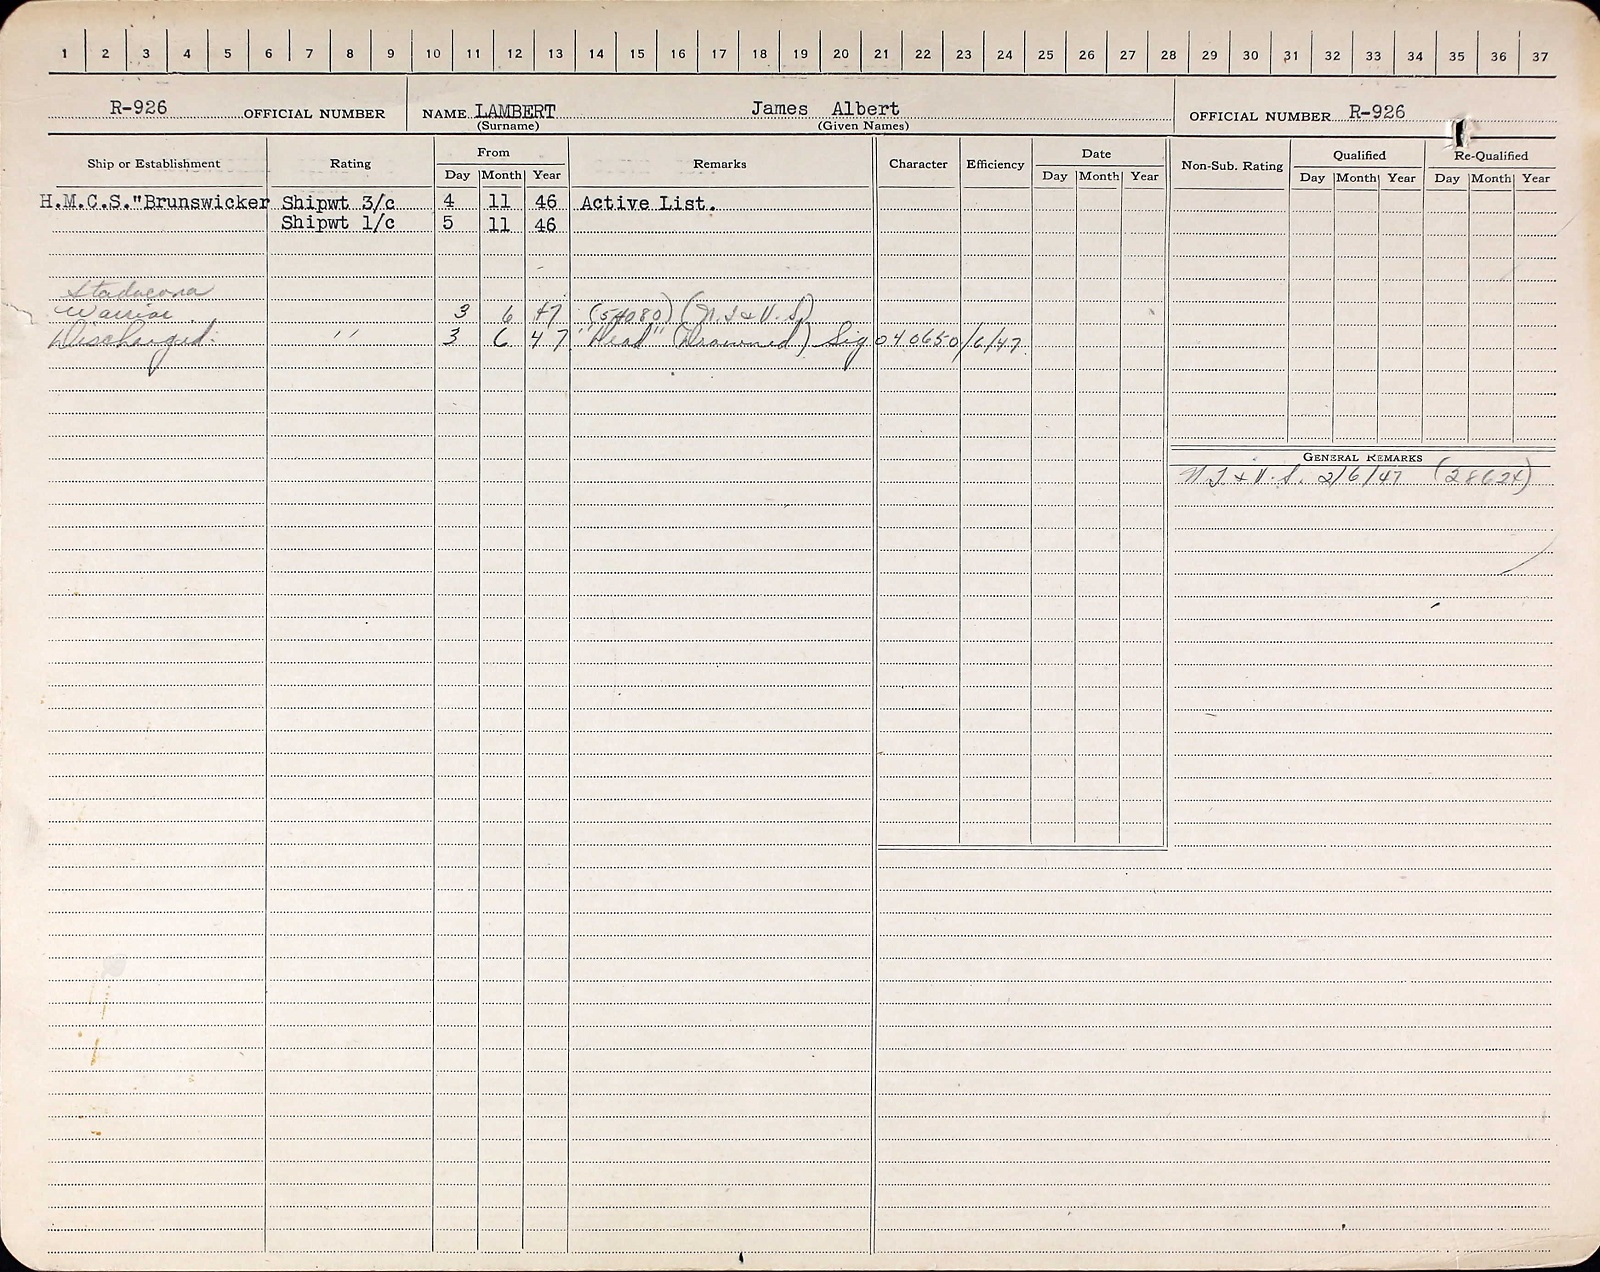 1 2 3 4 5 6 7 8 9 10 11 12 13 14 15 16 17 18 19 20 21 22 23 24 25 26 27 28 29 30 31 32 33 34 35 36 37
R-926 OFFICIAL NUMBER NAME LAMBERT James Albert OFFICIAL NUMBER R-926
(Surname) (Given Names)
Ship or Establishment Rating From Remarks Character Efficiency Date Non-Sub. Rating Qualified Re-Qualified
Day Month Year Day Month Year Day Month Year Day Month Year
H.M.C.S."Brunswicker Shipwt 3/c 4 11 46 Active List.
Shipwt 1/c 5 11 46
Stadacona
Warrior 3 6 47 (54080) (N.I & V.S)
Discharged. " 3 6 47 "Dead" (Drowned) Sig 040650/6/47
GENERAL REMARKS
N I & V.S. 2/6/47 (28624)